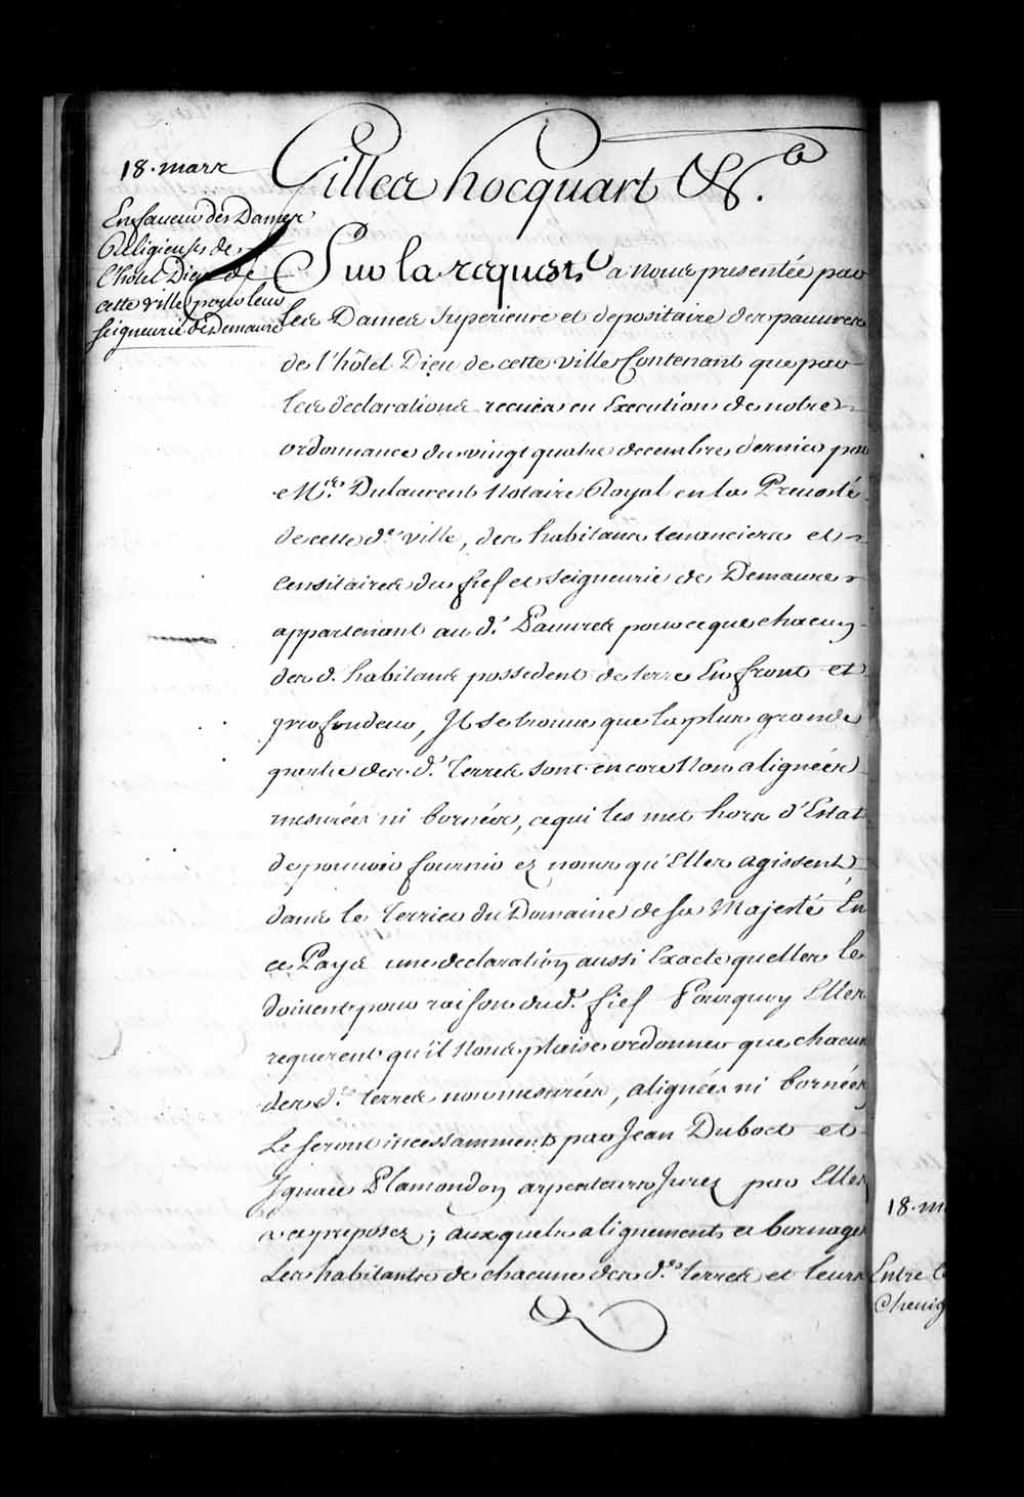 18. mars
En faueur des Dames
Religieuses de
l'hôtel Dieu de
cette ville pour leur
seigneurie de Demaure
Gilles hocquart &.a
Sur la requeste a nous presentée par
les Dames Superieure et depositaire des pauvres
de l'hôtel Dieu de cette ville Contenant que par
les declarations recues en Execution de notre
ordonnance du vingt quatre decembre dernier par
Me. Dulaurent Notaire Royal en la Prevosté
de cette de. ville, des habitans tenanciers et
Censitaires du fief et seigneurie de Demaure
appartenant au d.s Pauvres pour ce que chacun
des d. habitans possedent de terre En front et
profondeur, Il se trouve que la plus grande
partie des d.s terres sont encore Non alignées
mesurées ni bornées, ce qui les met hors d'Estat
de pouvoir fournir ez noms qu'Elles agissent
dans le Terrier du Domaine de sa Majesté En
ce Pays une declaration aussi Exacte quelles le
doivent pour raison dud. fief Pourquoy Elles
requerent qu'il Nous plaise ordonner que chacun
des d.es terres non mesurées, alignées ni bornées
Le seront incessamment par Jean Duboct et
Ignace Plamondon arpenteurs Jurez par Elles
a ce preposez; auxquels alignements et bornages
Les habitants de chacune des d.es terres et leurs
18. m
Entre l
Chevig